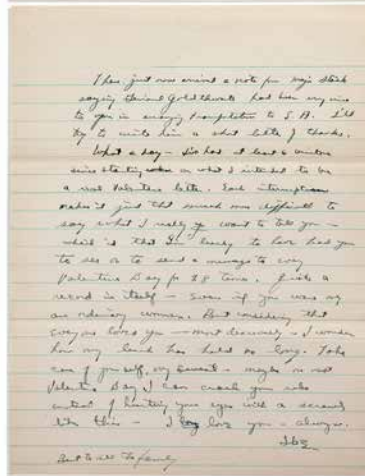 There just now arrived a note from Maj. Stack
saying General Goldthwaite had been very nice
to you in arranging transportation to S.A. I'll
try to write him a short letter of thanks.
What a day — I've had at least 6 visitors
since starting on what I intended to be
a real Valentine letter. Each interruption
makes it just that much more difficult to
say what I really want to tell you —
which is that I'm lucky to have had you
to see or to send a message to every
Valentine Day for 28 times. That's a
record in itself — even if you were
an ordinary woman. But considering that
everyone loves you — most deservedly — I wonder
how my luck has held so long. Take
care of yourself, my sweet — maybe on next
Valentine Day I can crack your ribs
instead of hurting your eyes with a scrawl
like this — I love you — always.
Ike
Best to all the family